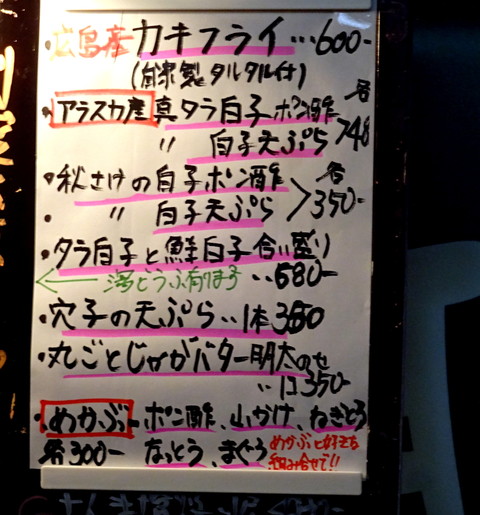 ・広島産カキフライ…600-
(自家製タルタル付)
・アラスカ産真タラ白子ポン酢
〃 白子天ぷら 各748
・秋さけの白子ポン酢
・〃 白子天ぷら 各350-
・タラ白子と鮭白子合い盛り
…680-
←湯どうふ有ます
・穴子の天ぷら‥1本350
・丸ごとじゃがバター明太のせ
‥1コ350-
・めかぶ-ポン酢、山かけ、ねぎとろ
各300- なっとう、まぐろ
めかぶと好きな
組み合せで!!